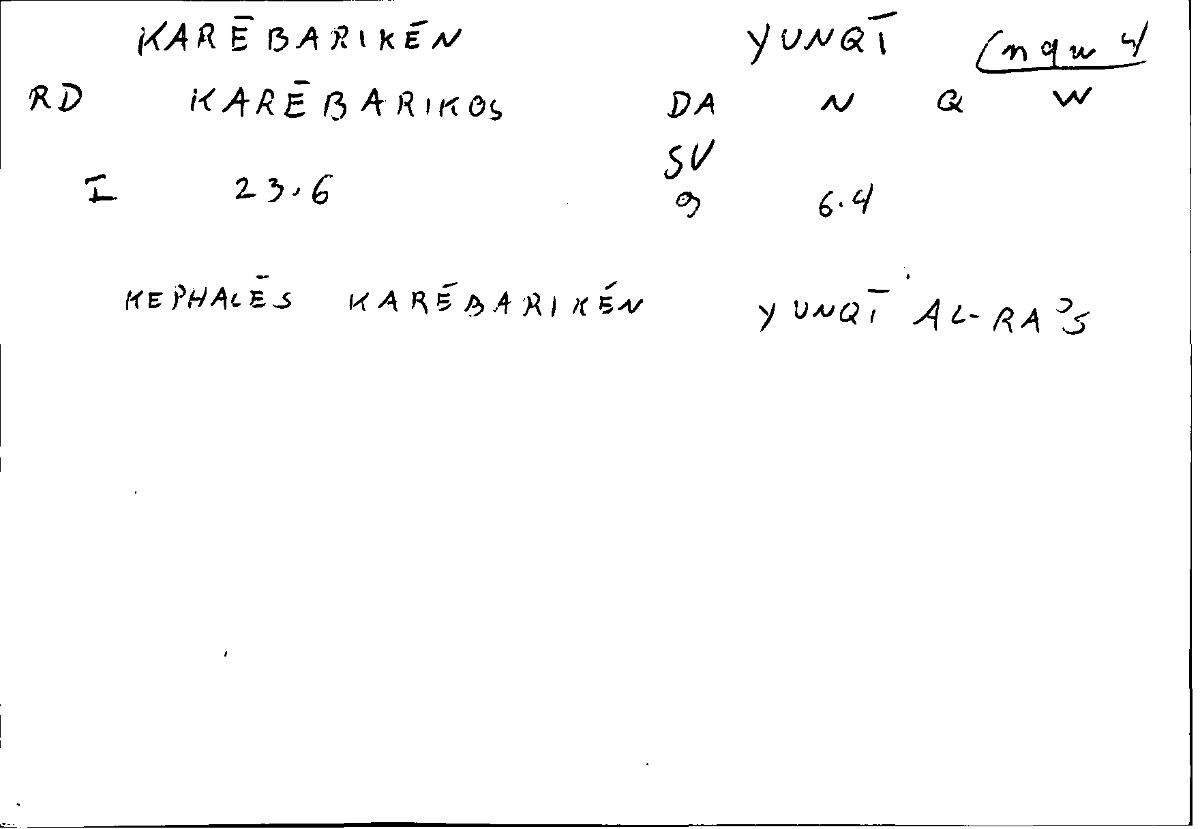 KARĒBARIKĒN YUNQĪ (nqw 4
RD KARĒBARIKOS DA N Q W
SV
I 23.6 9 6.4
KEPHALĒS KARĒBARIKĒN YUNQĪ AL-RAʾS